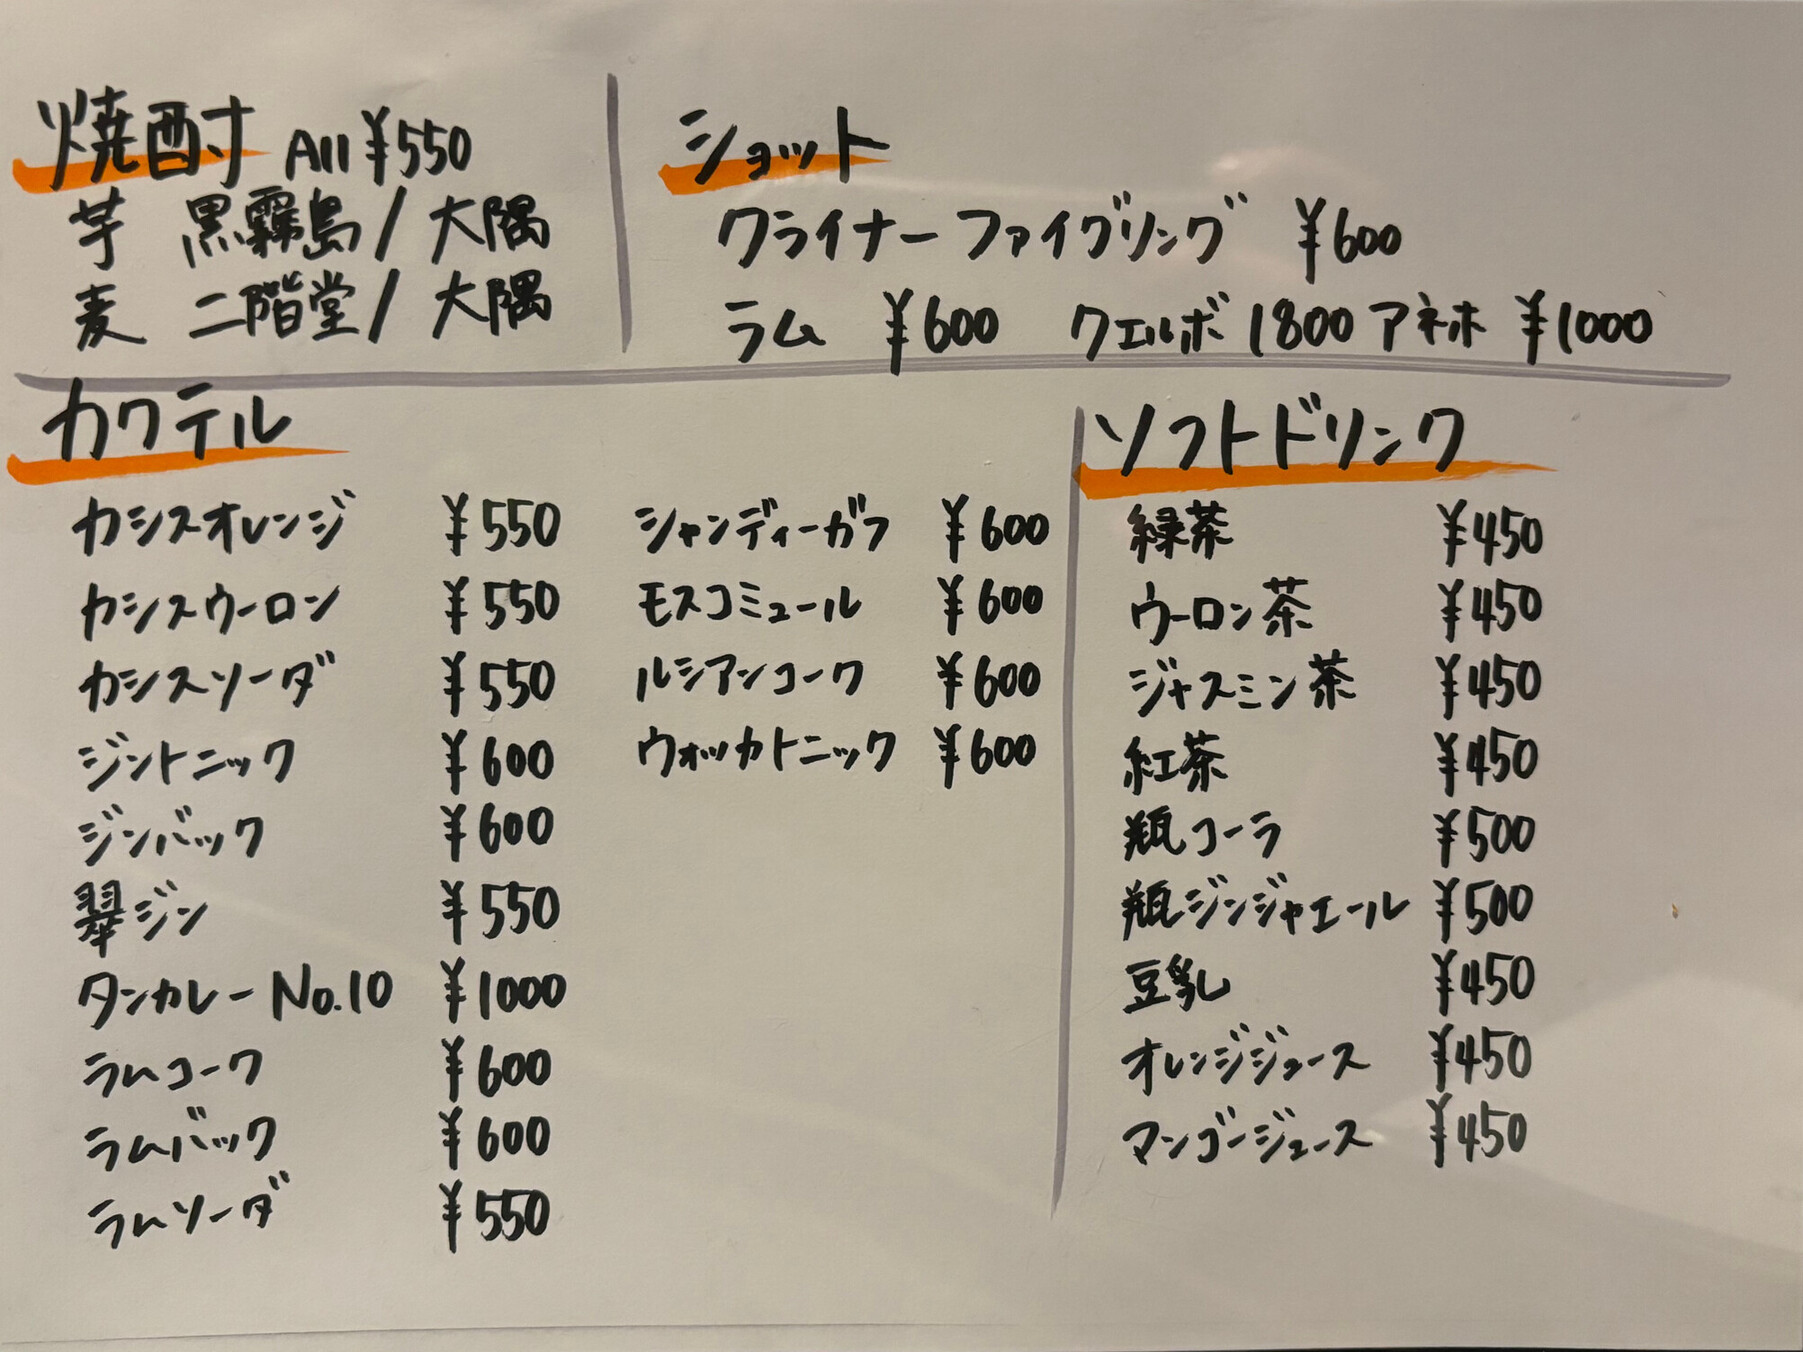 焼酎 All ¥550
芋 黒霧島/大隅
麦 二階堂/大隅
ショット
クライナーファイグリング ¥600
ラム ¥600 クエルボ1800アネホ ¥1000
カクテル
カシスオレンジ ¥550
カシスウーロン ¥550
カシスソーダ ¥550
ジントニック ¥600
ジンバック ¥600
翠ジン ¥550
タンカレーNo.10 ¥1000
ラムコーク ¥600
ラムバック ¥600
ラムソーダ ¥550
シャンディーガフ ¥600
モスコミュール ¥600
ルシアンコーク ¥600
ウォッカトニック ¥600
ソフトドリンク
緑茶 ¥450
ウーロン茶 ¥450
ジャスミン茶 ¥450
紅茶 ¥450
瓶コーラ ¥500
瓶ジンジャエール ¥500
豆乳 ¥450
オレンジジュース ¥450
マンゴージュース ¥450